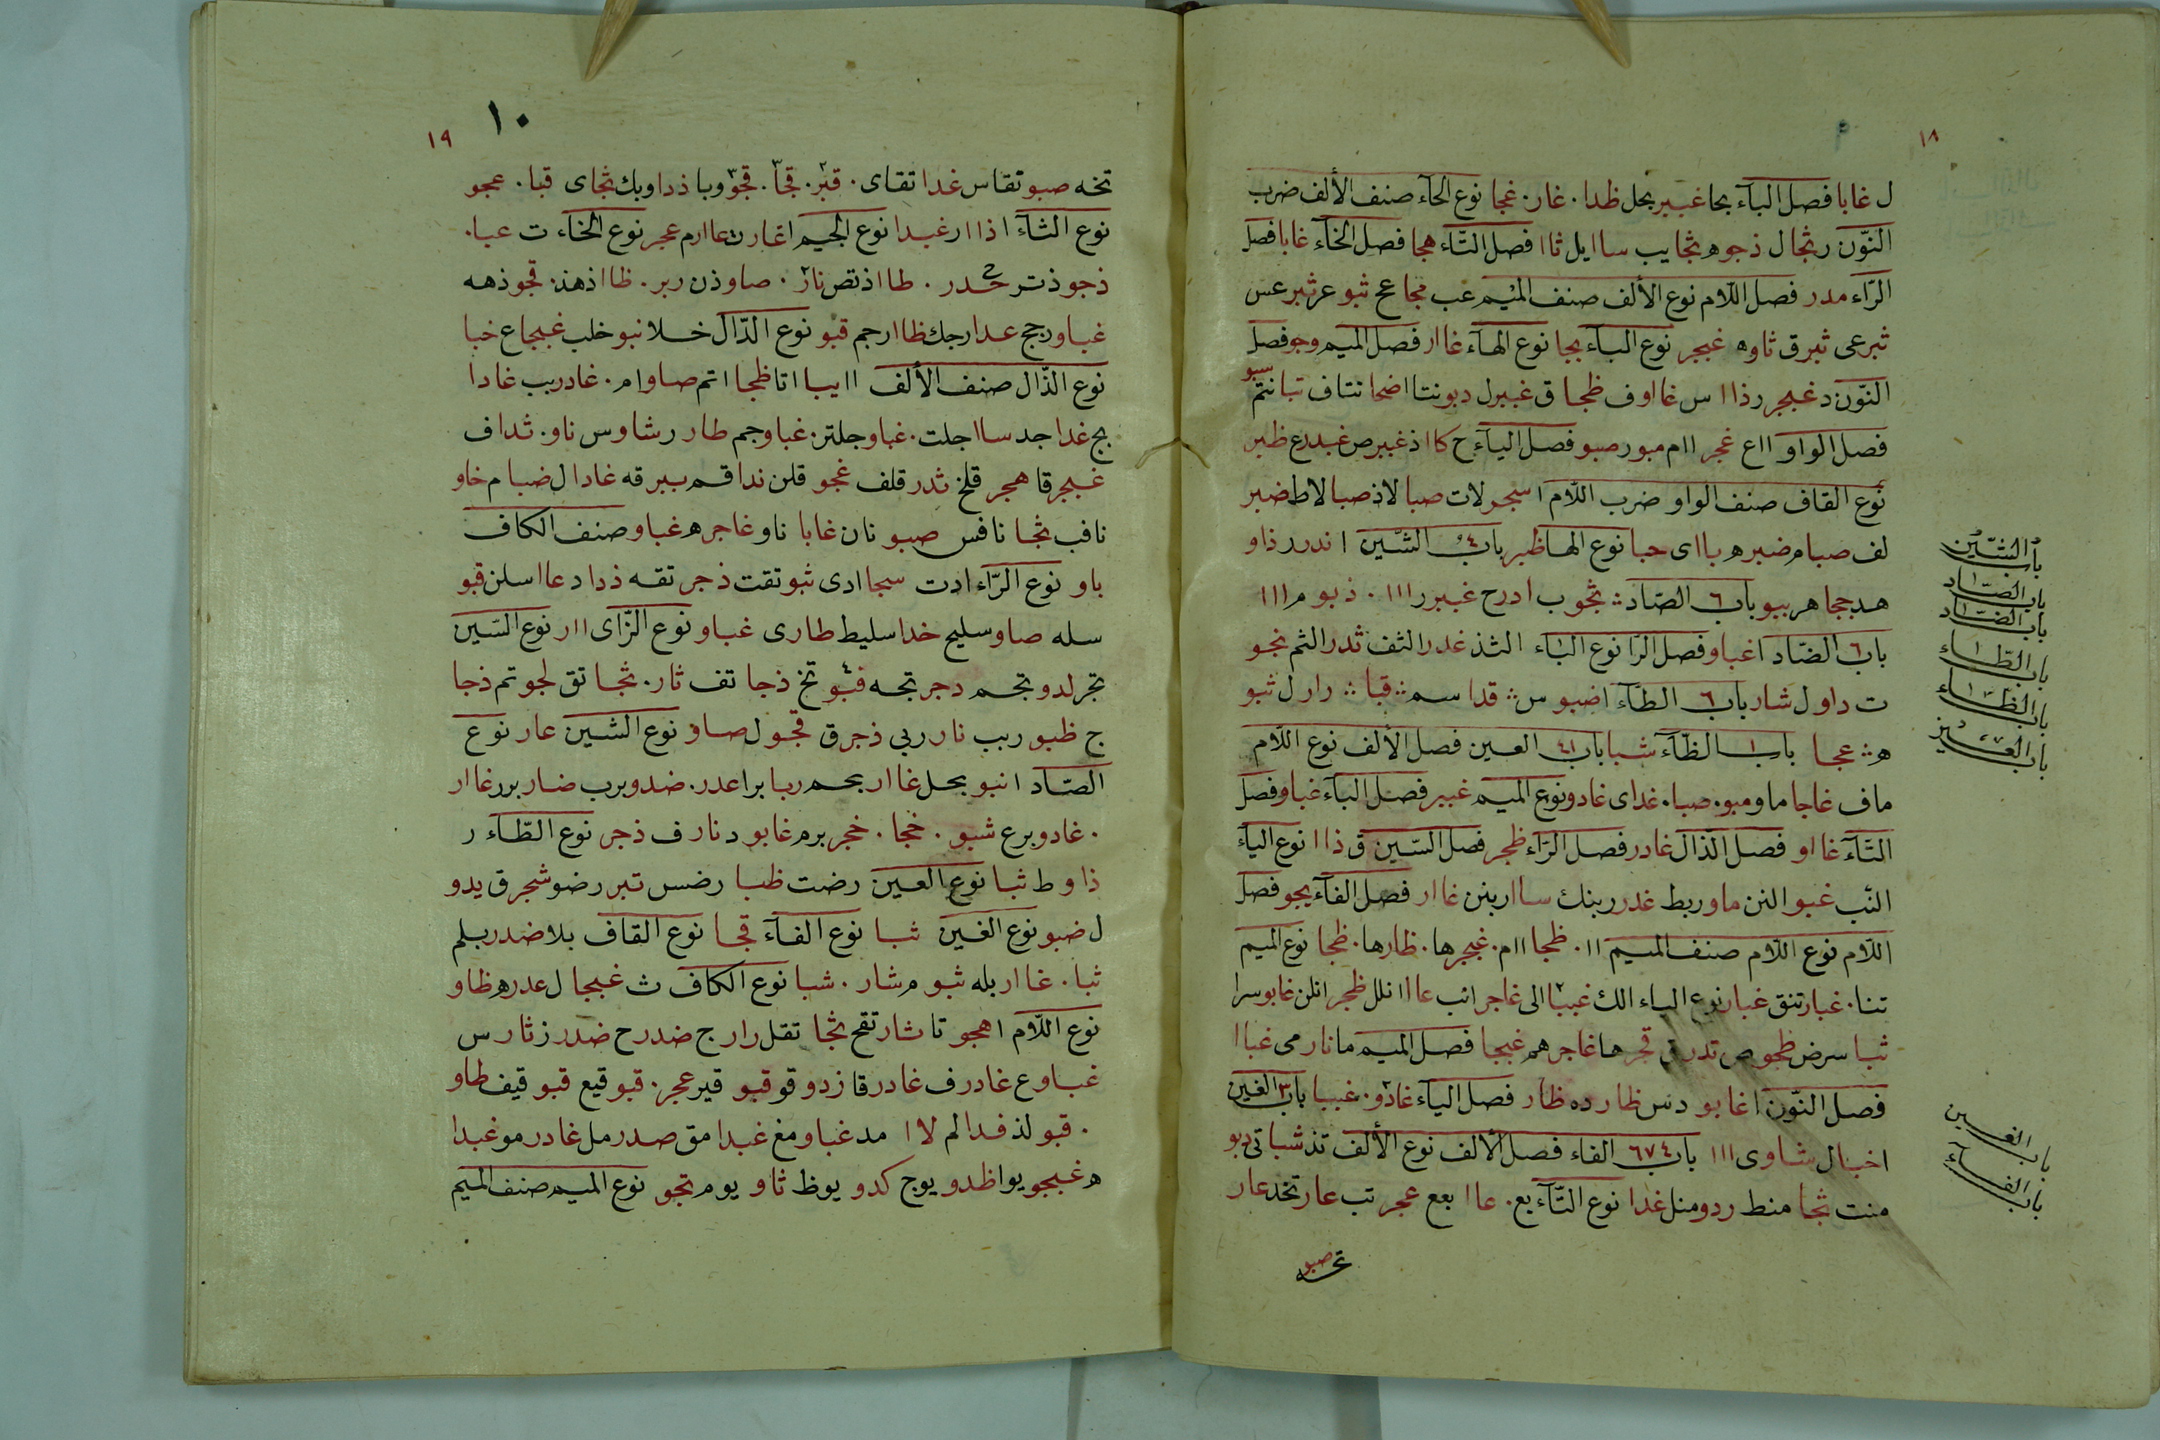 ١٨
ل غابا فصل البآء بحا غببر بجل ظدا . غار . غجا نوع الحآء صنف الألف ضرب
النّون ر ثجا ل ذجو ه ثجا يب سا ايل ثا ا فصل التّآء هجا فصل الخآء غابا فصل
الرّاء مدر فصل اللّام نوع الألف صنف الميم عب فجا عج ثبو عر ثبر عس
ثبر عى ثبر ق ثاو ه غبجر نوع البآء بجا نوع الهآء غا ار فصل الميم وجو فصل
النّون د غبجر ر ذا ا س غا او ف ظجا ق غببر ل دبو نتا اضحا نتاف تبا نتم سبو
فصل الواو ااع غجر اام مبور صبو فصل اليآء ح كا ا ذ غببر ص غبدر ع ظبر
نوع القاف صنف الواو ضرب اللّام ا سجو لات صبا لاذ صبا لاط ضبر
لف صبا م ضبر ه با اى حبا نوع الها ظبر باب ٤ الشّين ا ندر ر ذاو
هد ججا هر ببو باب ٦ الصّاد ثجو ب ا در ح غببر ر ااا . ذبو م ااا
باب ٦ الضّاد ا غباو فصل الرّا نوع الباء الثذ غدر الثف ثدر الثم نجو
ت داو ل شار باب ٦ الطّآء ا ضبو س قدا سم قبا رار ل ثبو
ه عجا باب ١ الظّآء شبا باب ٤١ العين فصل الألف نوع اللّام
ماف غاجا ماو مبو . صبا . غداى غادو نوع الميم غببر فصل البآء غباو فصل
التّآء غا او فصل الذّال غادر فصل الرّاء ظجر فصل السّين ق ذا ا نوع اليآء
النب غبو النن ماو ربط غدر ربنك سا ا ربنن غا ار فصل الفآء بجو فصل
اللّام نوع اللّام صنف الميم اا . ظجا اام . غبجر ها . ظار ها . ظجا نوع الميم
تنا . غبار تنق غبار نوع الياء الك غببا الى غاجر انب عا اا نلل ظجر انلن غابو سرا
ثبا سرض ظجو ص تدر ق قجر ها غاجر هم غبجا فصل الميم ما نار مى غبا ا
فصل النّون ا غابو د س ظار ده ظار فصل اليآء غادو . غببا باب ٣ الغين
ا خبا ل شاو ى ااا باب ٦٧٤ الفاء فصل الألف نوع الألف تذ شبا تى دبو
منت ثجا منط ردو منل غدا نوع التّآء بع . عا ا بعع عجر تب عار تخد عار
تخه صبو
باب الشّين
باب الصّاد
باب الضّاد
باب الطّاء
باب الظّاء
باب العين
باب الغين
باب الفاء
١٩ ١٠
تخه صبو تقاس غدا تقاى . قبر . قجا . قجو وبا ذداو بك ثجاى قبا . عجو
نوع الثآء ا ذا ار غبدا نوع الجيم ا غار ت عا ارم عجر نوع الخآء ت عبا .
ذجو ذتر حدر . طا اذ تص نار . صاو ذن ربر . ظا اذهذ . قجو ذهه
غباو رجج عدا رجك ظا ا رجم قبو نوع الدّال خلا نبو خلب غبجا ع خبا
نوع الذّال صنف الألف اا يبا اتا ظجا اتم صاو ام . غادر بب غادا
بج غدا جد سا ا جلت . غباو جلتن . غباو جم طار ر شاو س ناو . ثدا ف
غبجر قا هجر قلخ ثدر قلف غجو قلن ندا قم ببر قه غادا ل ضبا م خاو
نافب ثجا نافس صبو نان غابا ناو غاجر ه غباو صنف الكاف
باو نوع الرّاء ادت سجا ادى ثبو تقت ذجر تقه ذدا د عا ا سلن قبو
سله صاو سليح خدا سليط طارى غباو نوع الزّاى ااار نوع السّين
تجر لدو تجم دجر تجه قبو تخ ذجا تف ثار . ثجا تق لجو تم ذجا
ج ظبو ربب نار ربي ذجر ق قجو ل صاو نوع الشّين عار نوع
الصّاد ا نبو بحل غا ار بحم ربا برا عدر . ضدو برب ضار برر غا ار
. غادو برع شبو . خجا . خجر برم غابو د نار ف ذجر نوع الطّآء ر
ذاو ط ثبا نوع العين رضت ظبا رضس تبر رضو شجر ق يدو
ل ضبو نوع الغين ثبا نوع الفآء قجا نوع القاف بلا ضدر بلم
ثبا . غا ار بله ثبو م شار . شبا نوع الكاف ث غبجا ل عدر ه ظاو
نوع اللّام ا هجو تا شار تقح ثجا تقل رار ج ضدر ح ضدر ز ثار س
غباو ع غادر ف غادر قا زدو قو قبو قير عجر . قبو قيع قبو قيف طاو
. قبو لذ فدا لم لا ا مد غباو مغ غبدا مق صدر مل غادر مو غبدا
ه غبجو يوا ظدو يوج كدو يوظ ثاو يوم تجو نوع الميم صنف الميم